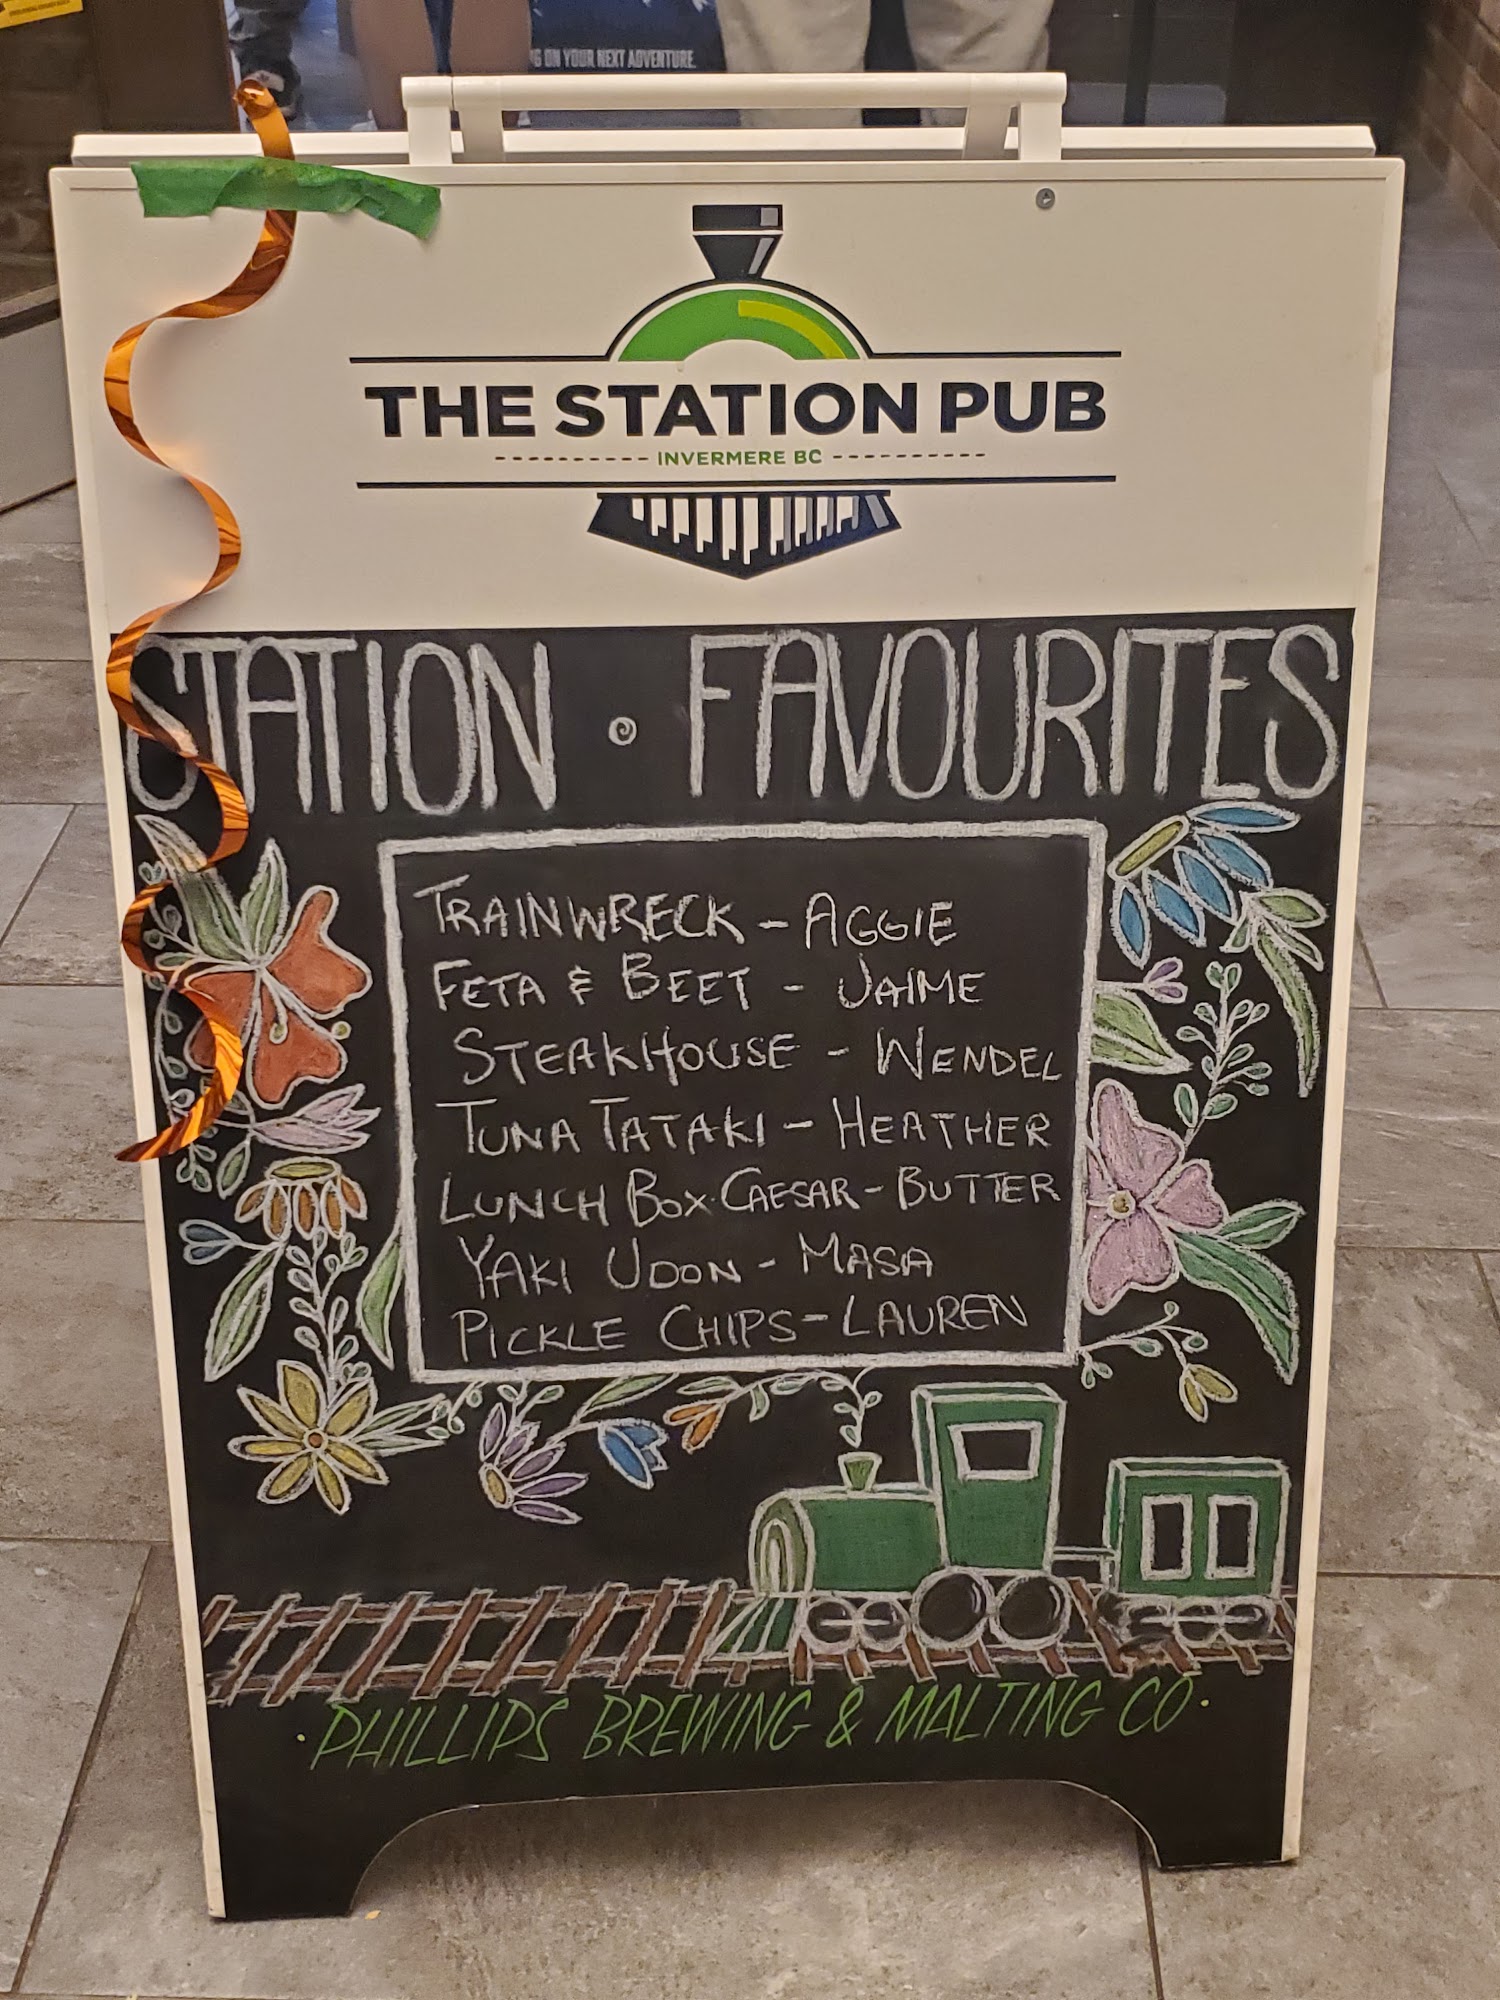 G ON YOUR NEXT ADVENTURE.
THE STATION PUB
INVERMERE BC
STATION · FAVOURITES
TRAINWRECK - AGGIE
FETA & BEET - JAIME
STEAKHOUSE - WENDEL
TUNA TATAKI - HEATHER
LUNCH BOX CAESAR - BUTTER
YAKI UDON - MASA
PICKLE CHIPS - LAUREN
· PHILLIPS BREWING & MALTING CO ·